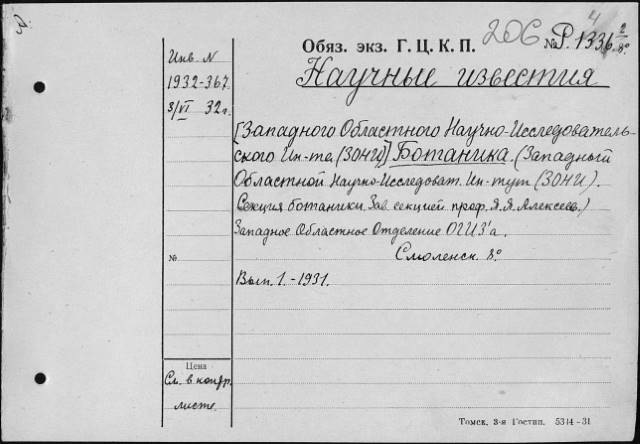 4
206
Обяз. экз. Г. Ц. К. П.
№ Р. 1336 2/8º
Инв. N
1932-367
3/VI 32 г.
Научные известия
[Западного Областного Научно-Исследователь-
ского Ин-та (ЗОНИ)] Ботаника. (Западный
Областной Научно-Исследоват. Ин-тут (ЗОНИ).
Секция ботаники. Зав. секцией проф. Я. Я. Алексеев.)
Западное Областное Отделение ОГИЗ'а.
Смоленск. 8º
№
Вып. 1. - 1931.
Цена
См. в контр.
листе.
Томск. 3-я Гостип. 5314-31